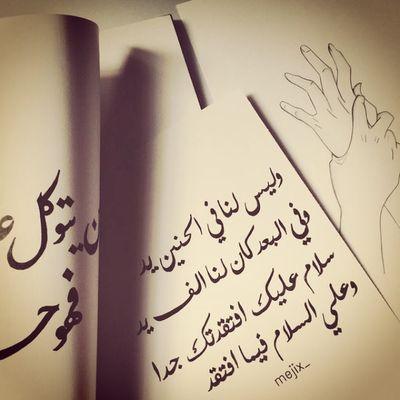 وليس لنا في الحنين يد
وفي البعد كان لنا الف يد
سلام عليك افتقدتك جدا
وعلي السلام فيما افتقد
mejix_
يتوكل
فهو